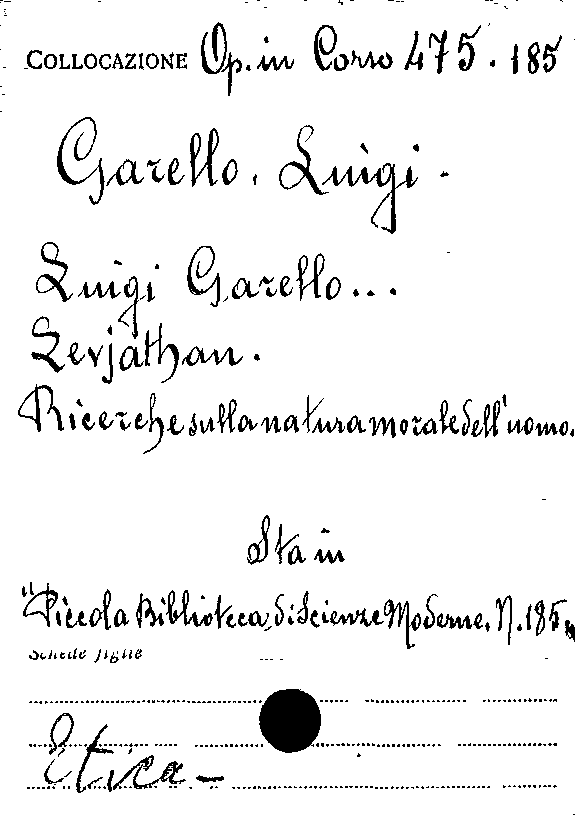 COLLOCAZIONE Op. in Corso 475.185
Garello, Luigi -
Luigi Garello...
Levjathan.
Ricerche sulla natura morale dell'uomo.
Sta in
"Piccola Biblioteca di Scienze Moderne. N. 185"
Schede figlie
Etica -